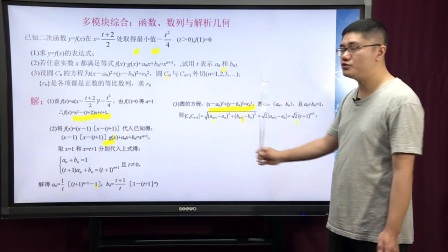 多模块综合：函数、数列与解析几何
已知二次函数 y=f(x)在 x=(t+2)/2 处取得最小值-t²/4 (t>0), f(1)=0
(1)求 y=f(x)的表达式；
(2)若任意实数 x 都满足等式 f(x)·g(x)+aₙx+bₙ=xⁿ⁺¹，试用 t 表示 aₙ和 bₙ；
(3)设圆 Cₙ的方程为(x-aₙ)²+(y-bₙ)²=rₙ²，圆 Cₙ与 Cₙ₊₁外切(n=1,2,3,…)；
{rₙ}是各项都是正数的等比数列，求
解：
(1)设 f(x)=a(x-(t+2)/2)²-t²/4，由 f(1)=0 得 a=1
∴f(x)=x²-(t+2)x+t+1，
(2)将 f(x)=(x-1)［x-(t+1)］代入已知得：
(x-1)［x-(t+1)］g(x)+aₙx+bₙ=xⁿ⁺¹，
取 x=1 和 x=t+1 分别代入上式得：
{aₙ+bₙ=1
(t+1)aₙ+bₙ=(t+1)ⁿ⁺¹ 且 t≠0，
解得 aₙ=1/t［(t+1)ⁿ⁺¹-1］，bₙ=(t+1)/t［1-(t+1)ⁿ］
(3)圆的方程：(x-aₙ)²+(y-bₙ)²=rₙ²，
(aₙ，bₙ)，且 aₙ+bₙ=1，
则|CₙCₙ₊₁|=√((aₙ₊₁-aₙ)²+(bₙ₊₁-bₙ)²)=√2|aₙ₊₁-aₙ|=√2(t+1)ⁿ⁺¹，
seewo